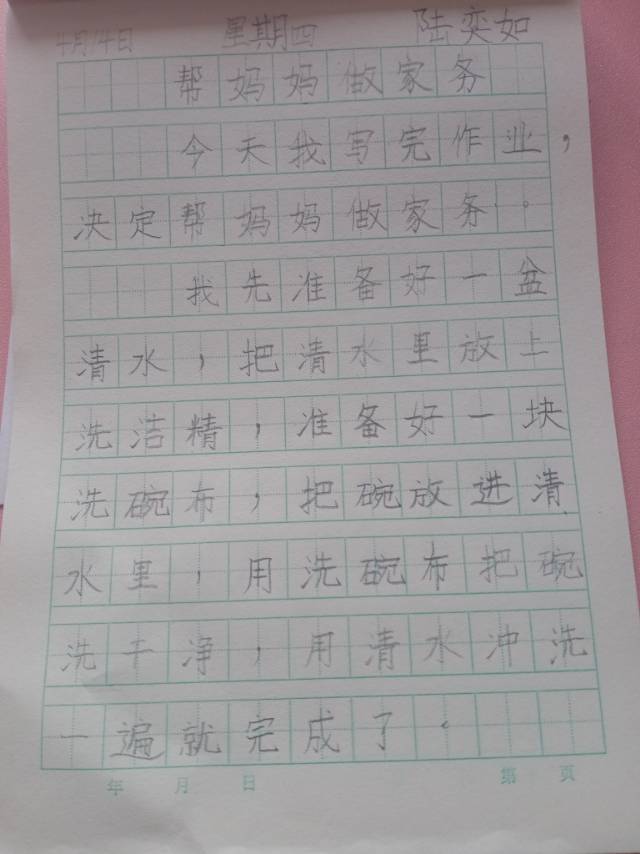 4月14日 星期四 陆奕如
帮妈妈做家务
今天我写完作业，
决定帮妈妈做家务。
我先准备好一盆
清水，把清水里放上
洗洁精，准备好一块
洗碗布，把碗放进清
水里，用洗碗布把碗
洗干净，用清水冲洗
一遍就完成了。
年 月 日 第 页